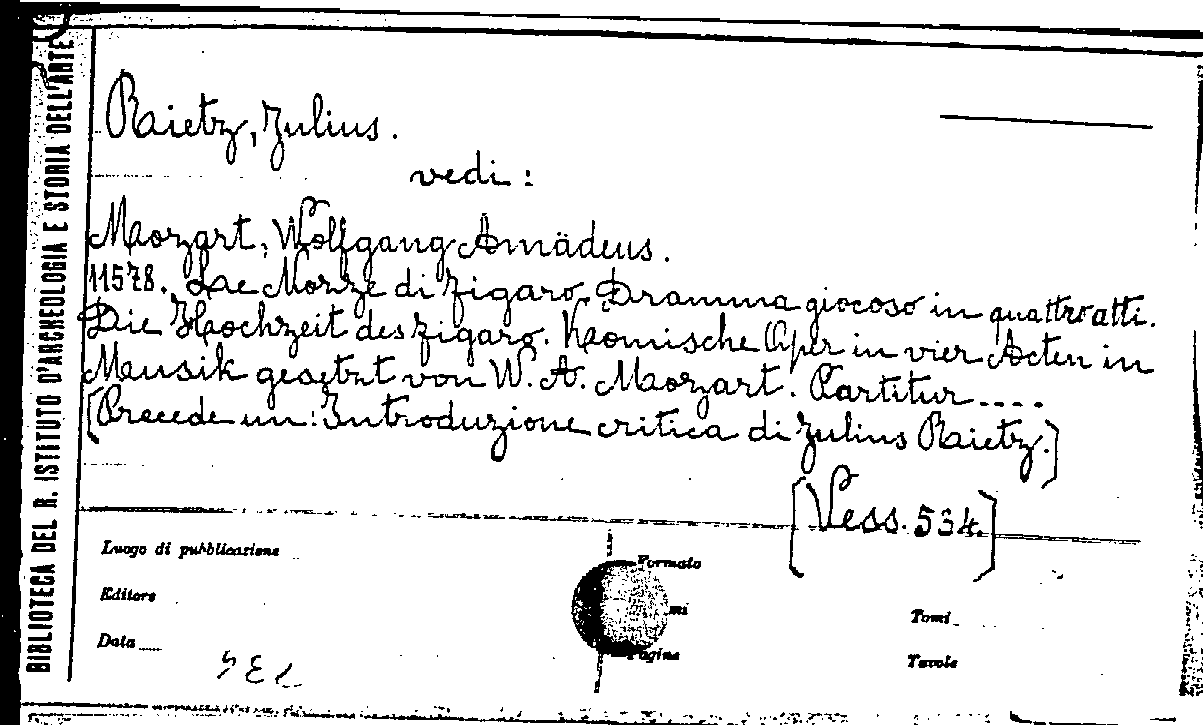 BIBLIOTECA DEL R. ISTITUTO D'ARCHEOLOGIA E STORIA DELL'ARTE
Raietz, Julius.
vedi:
Mozart, Wolfgang Amädeus.
11578. Le Nozze di Figaro. Dramma giocoso in quattro atti.
Die Hochzeit des Figaro. Komische Oper in vier Acten in
Musik gesetzt von W. A. Mozart. Partitur....
[Precede un: Introduzione critica di Julius Raietz.]
[Vess. 534.]
Luogo di pubblicazione
Formato
Editore
mi
Tomi
Data
Pagine
Tavole